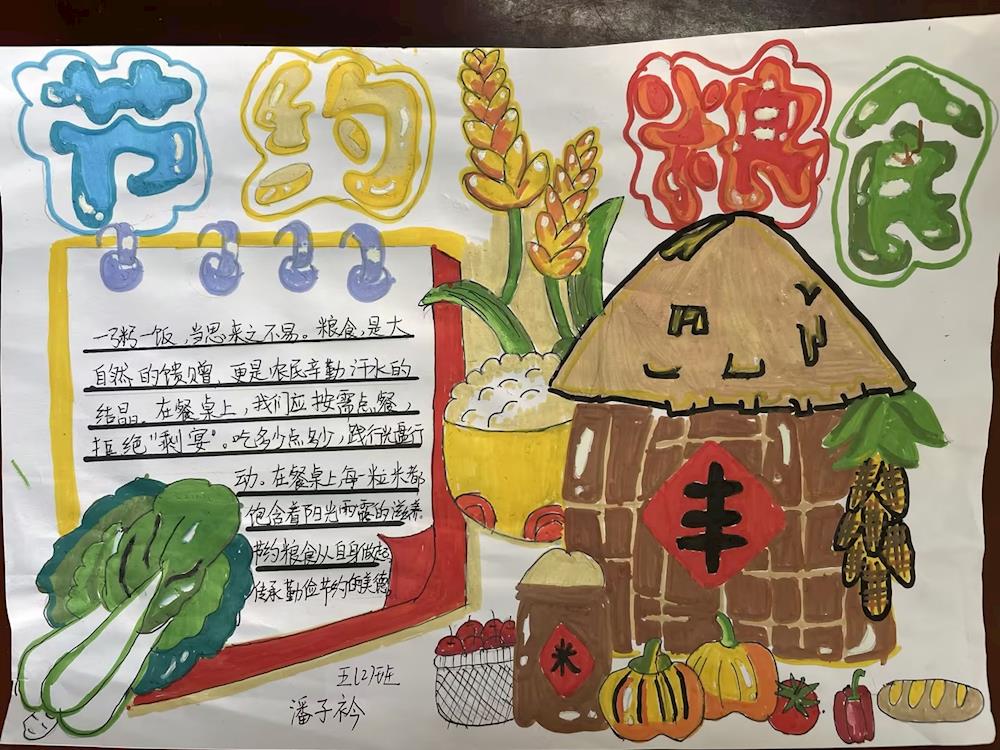 节约粮食
一粥一饭,当思来之不易。粮食,是大
自然的馈赠,更是农民辛勤汗水的
结晶。在餐桌上,我们应按需点餐,
拒绝“剩宴”。吃多少点多少,践行光盘行
动。在餐桌上每一粒米都
饱含着阳光雨露的滋养。
节约粮食从自身做起
传承勤俭节约的美德
丰
米
五(2)班
潘子衿